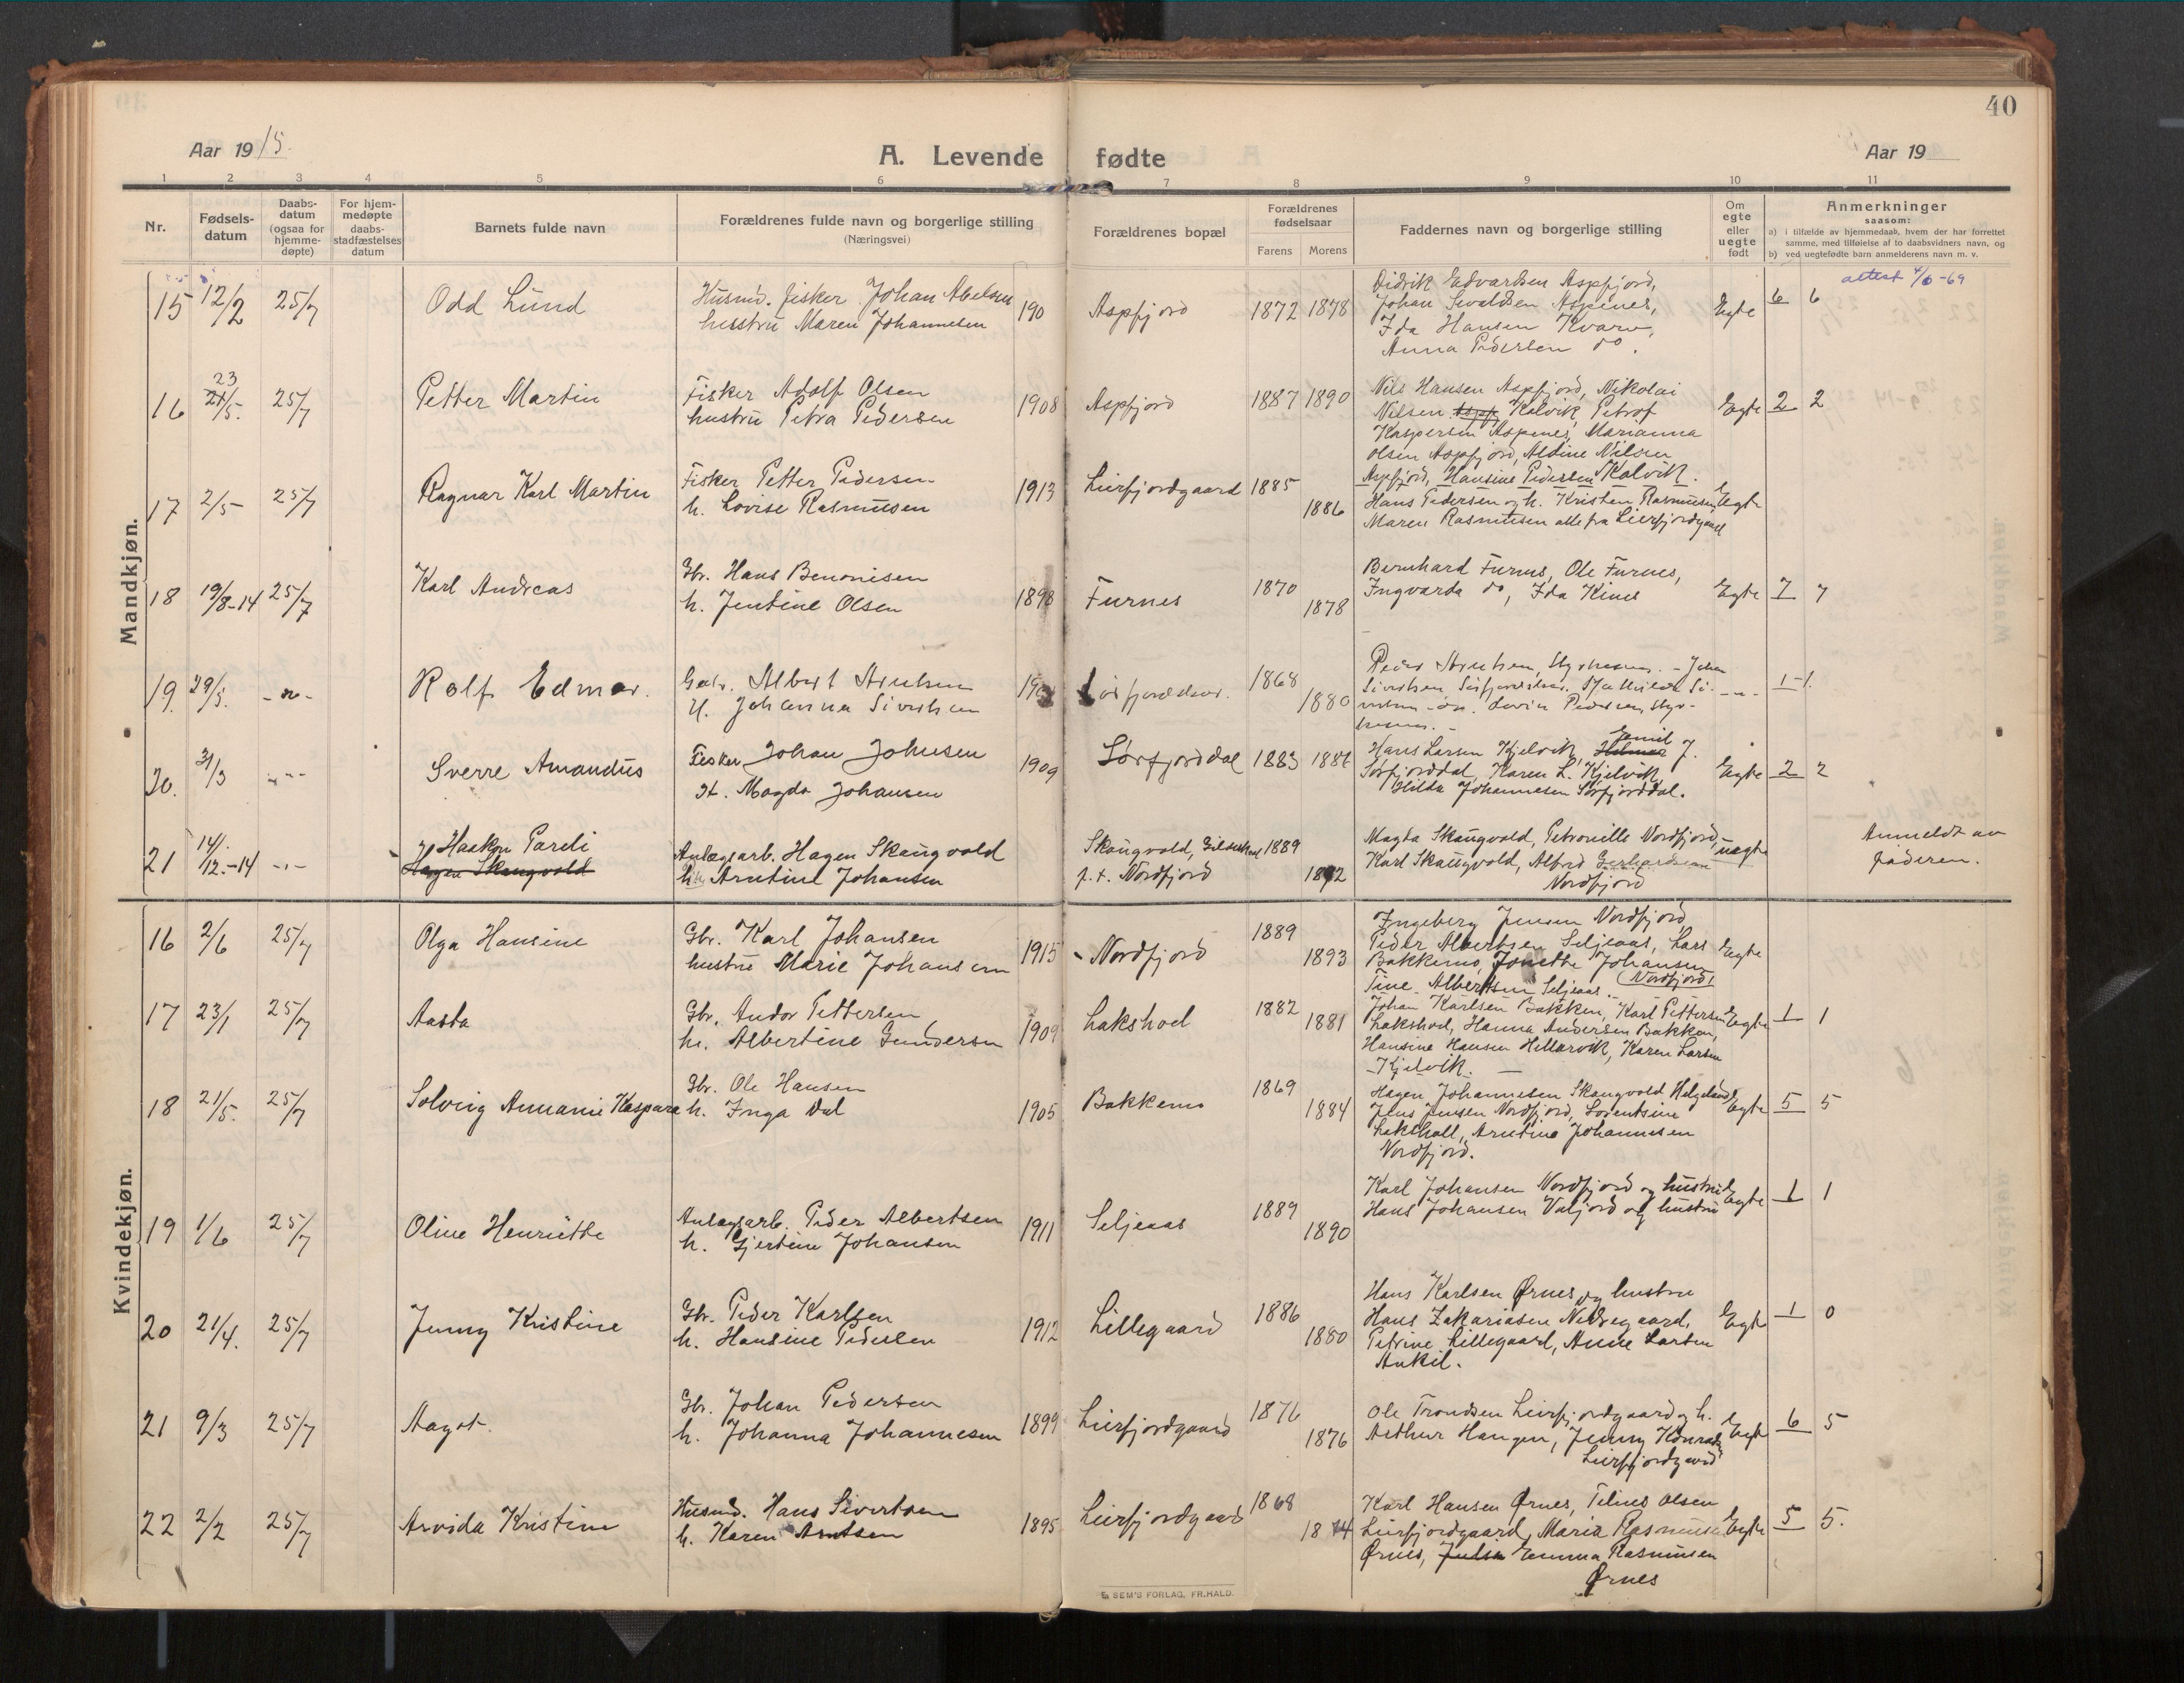 40
Aar 1915.
A. Levende fødte
Aar 19
1 2 3 4 5 6 7 8 9 10 11
Nr.
Fødsels-
datum
Daabs-
datum
(ogsaa for
hjemme-
døpte)
For hjem-
medøpte
daabs-
stadfæstelses
datum
Barnets fulde navn
Forældrenes fulde navn og borgerlige stilling
(Næringsvei)
Forældrenes bopæl
Forældrenes
fødselsaar
Farens Morens
Faddernes navn og borgerlige stilling
Om
egte
eller
uegte
født
Anmerkninger
saasom:
a) i tilfælde av hjemmedaab, hvem der har forrettet
samme, med tilføielse af to daabsvidners navn, og
b) ved uegtefødte barn anmelderens navn m. v.
Mandkjøn.
15 12/2 25/7 Odd Lund
Husmd. fisker Johan Abelsen
hustru Maren Johannesen
190 Aspfjord 1872 1878
Didrik Edvardsen Aspfjord,
Johan Sivaldsen Aspenes,
Ida Hansen Kvarv,
Anna Pedersen do.
Egte 6 6
attest 4/6-69
16 23 21/5. 25/7 Petter Martin
Fisker Adolf Olsen
hustru Petra Pedersen
1908 Aspfjord 1887 1890
Nils Hansen Aspfjord, Nikolai
Nilsen Aspf Kalvik, Petrof
Kaspersen Aspenes, Marianna
Olsen Aspfjord, Aldine Nilsen
Aspfjord, Hansine Pedersen Kalvik.
Egte 2 2
17 2/5 25/7 Ragnar Karl Martin
Fisker Petter Pedersen
h. Lovise Rasmussen
1913 Leirfjordgaard 1885 1886
Hans Pedersen og h. Kristen Rasmussen
Maren Rasmussen alle fra Leirfjordgaard
Egte
18 19/8-14 25/7 Karl Andreas
Gbr. Hans Benonisen
h. Jentine Olsen
1898 Furnes 1870 1878
Bernhard Furnes, Ole Furnes,
Ingvarda do, Ida Kines
Egte 7 7
19. 29/5. -"- Rolf Edmar.
Gbr. Albert Arntsen
H. Johanna Sivertsen
1868 1880
-"- 1 1.
20. 31/3 -"- Sverre Amandus
Fisker Johan Johnsen
H. Magda Johansen
1909 Sørfjorddal 1883 1887
Hans Larsen Kjelvik, Hilmar Emil J.
Sørfjorddal, Karen L. Kjelvik,
Hilda Johannesen Sørfjorddal.
Egte 2 2
21 14/12.-14 -"- Haakon Pareli
Hagen Skaugvold
Anlægsarb. Hagen Skaugvold
Arntine Johansen
Skaugvold, Gildeskaal
p.t. Nordfjord
1889 1892
Magda Skaugvold, Petronille Nordfjord,
Karl Skaugvold, Alfred Gerhardsen
Nordfjord
uegte
Anmeldt av
faderen.
Kvindekjøn.
16 2/6 25/7 Olga Hansine
Gbr. Karl Johansen
hustru Marie Johansen
1915 Nordfjord 1889 1893
Ingeberg Jensen Nordfjord
Peder Albertsen Seljeaas, Lars
Bakkemo, Jonette Johansen
Nordfjord
Tine Albertsen Seljeaas.
Egte
17 23/1 25/7 Aasta
Gbr. Andor Pettersen
h. Albertine Gundersen
1909 Lakshol 1882 1881
Johan Karlsen Bakken, Karl Pettersen
Lakshol, Hanna Andersen Bakken,
Hansine Hansen Hellarvik, Karen Larsen
Kjelvik.
Egte 1 1
18 21/5. 25/7 Solveig Annanie Kaspara
Gbr. Ole Hansen
h. Inga Dal
1905 Bakkemo 1869 1884
Hagen Johannesen Skaugvold Helgeland
Jens Jensen Nordfjord, Lorentsine
Lakshall, Arntine Johannesen
Nordfjord.
Egte 5 5
19 1/6 25/7 Oline Henriette
Anlægsarb. Peder Albertsen
h. Gjertine Johansen
1911 Seljeaas 1889 1890
Karl Johansen Nordfjord og hustru
Hans Johansen Valjord og hustru
Egte 1 1
20 21/4. 25/7 Jenny Kristine
Gbr. Peder Karlsen
h. Hansine Pedersen
1912 Lillegaard 1886 1880
Hans Karlsen Ørnes og hustru
Hans Zakariasen Nedregaard,
Petrine Lillegaard, Anne Larsen
Ankil.
Egte 1 0
21 9/3 25/7 Aagot.
Gbr. Johan Pedersen
h. Johanna Johannesen
1899 Leirfjordgaard 1876 1876
Ole Trondsen Leirfjordgaard og h.
Arthur Haugen, Jenny
Leirfjordgaard
Egte 6 5
22 2/2 25/7 Arvida Kristine
Husmd. Hans Sivertsen
h. Karen Arntsen
1895 Leirfjordgaard 1868 1874
Karl Hansen Ørnes, Telius Olsen
Leirfjordgaard, Maria Rasmussen
Ørnes, Julia Emma Rasmussen
Ørnes
Egte 5 5.
SEM'S FORLAG, FR.HALD.